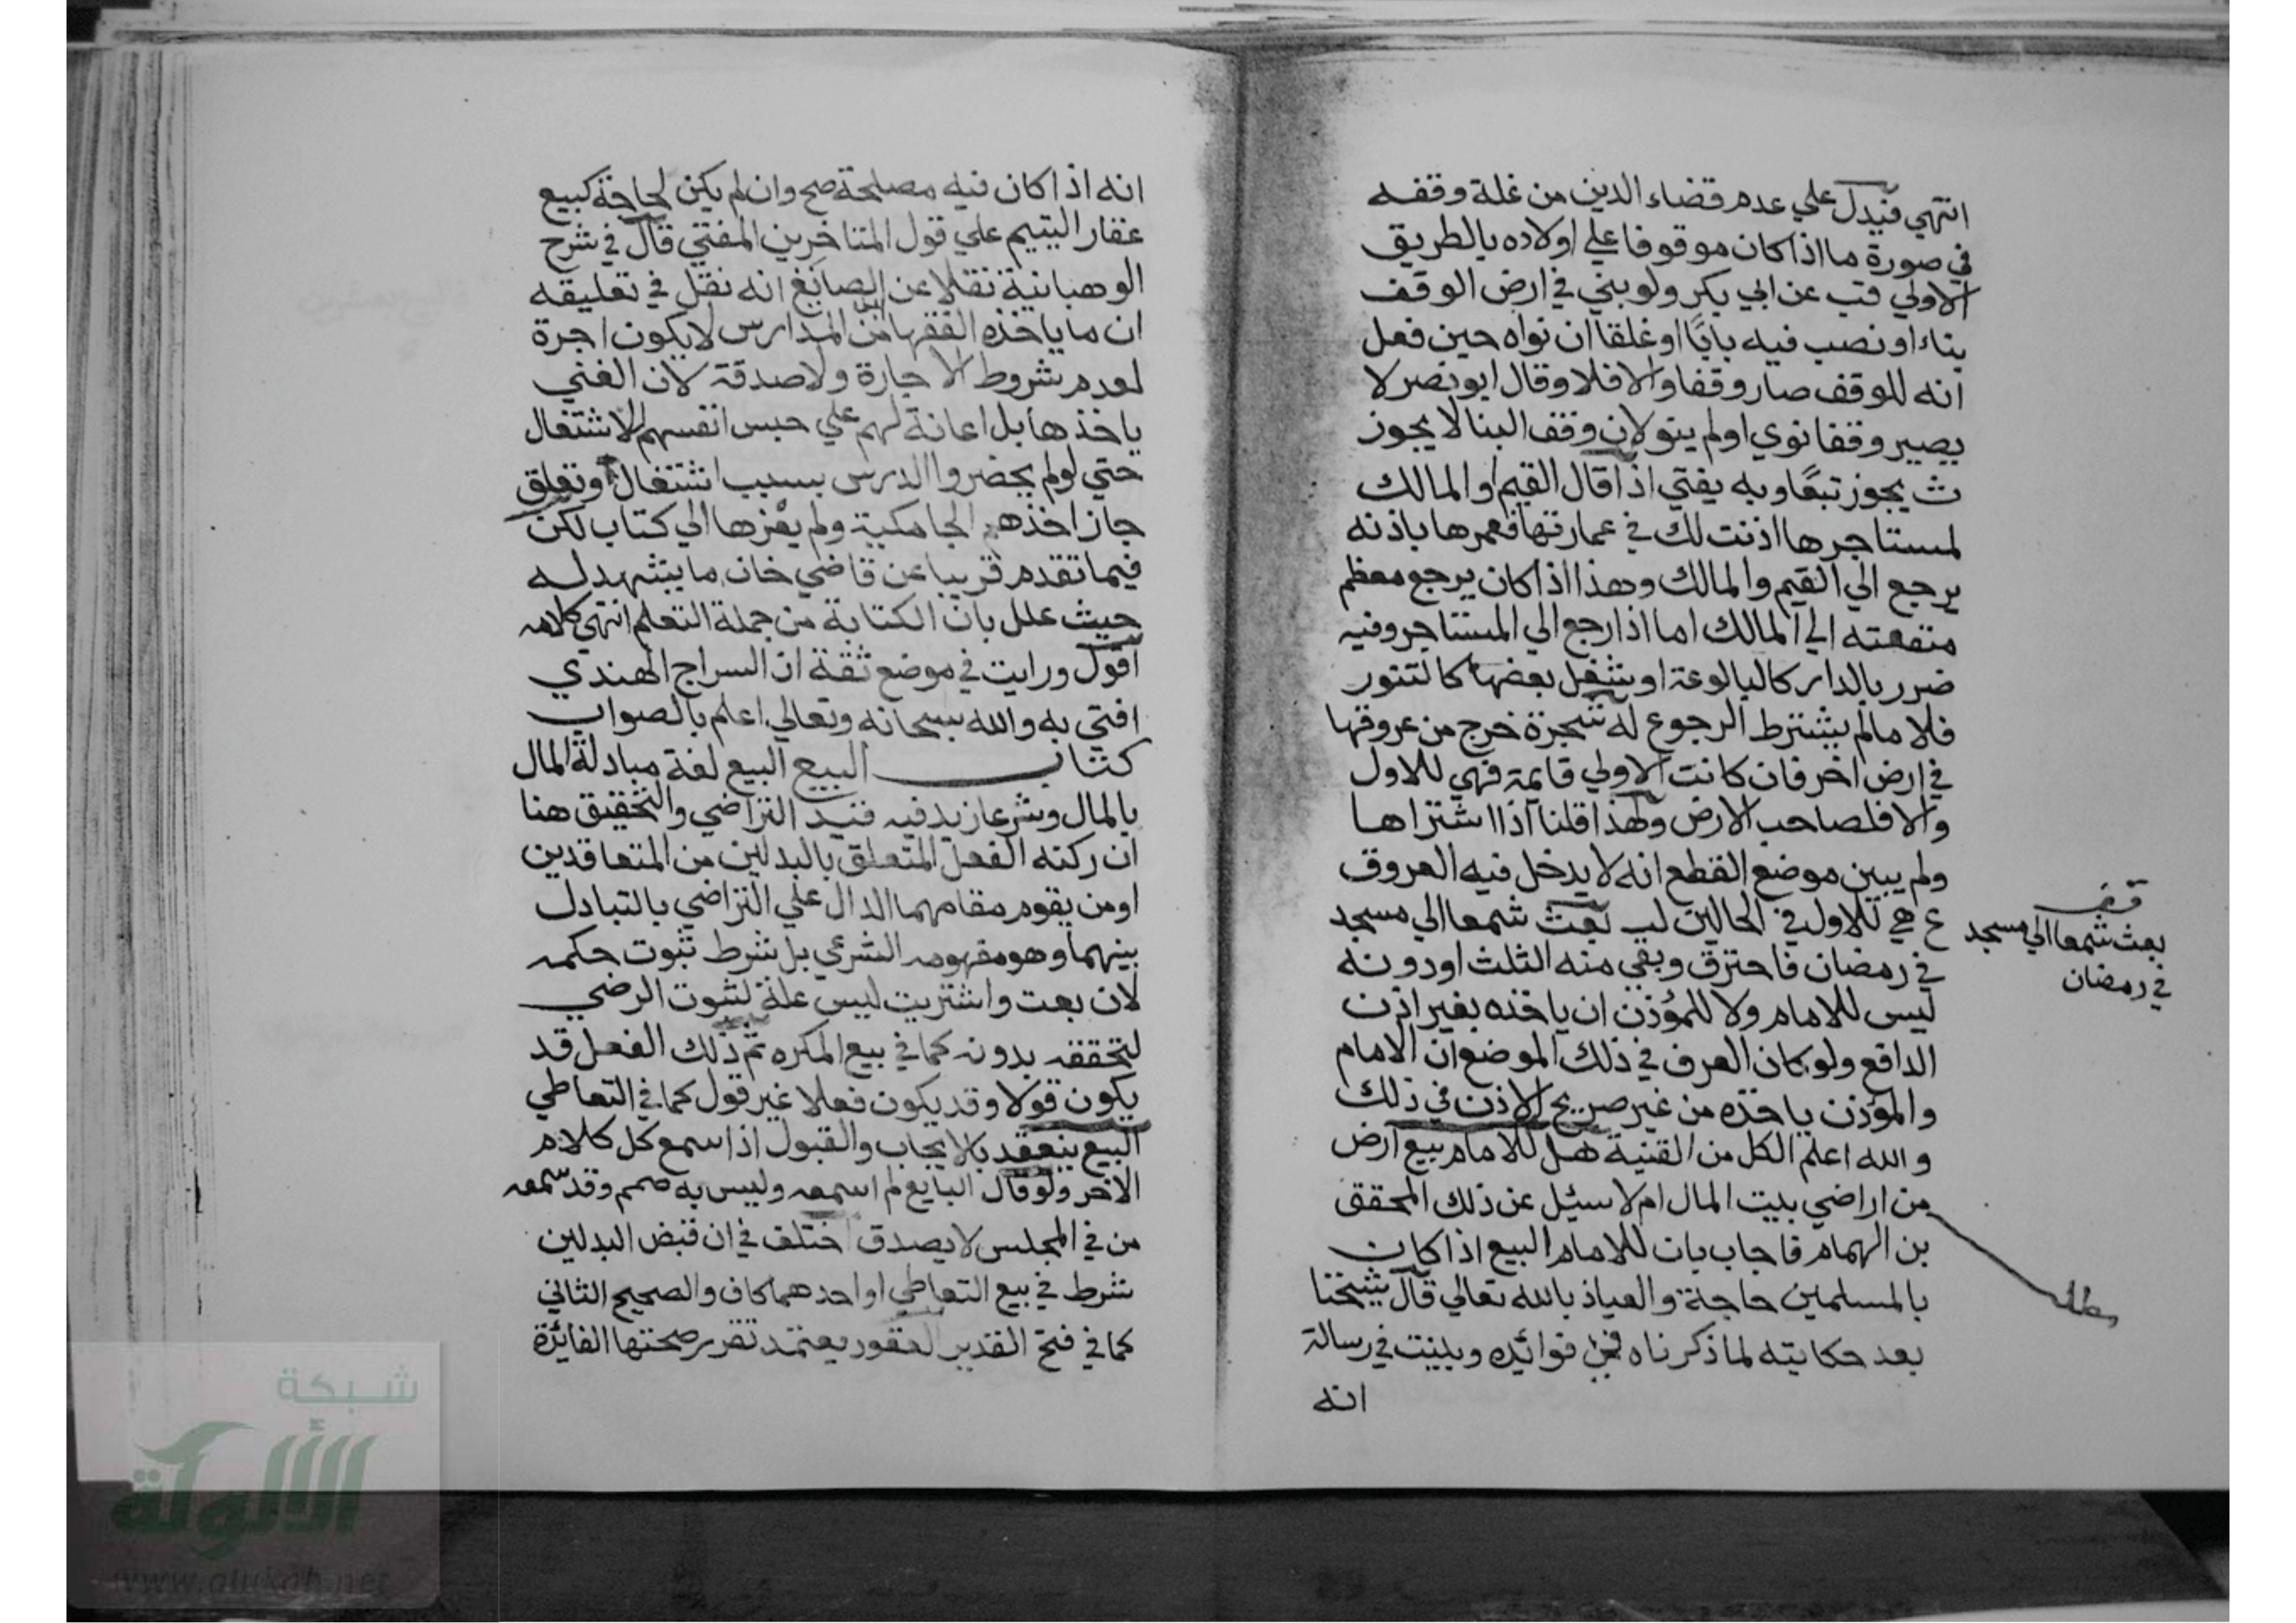 انتهي فيدل علي عدم قضاء الدين من غلة وقفه
في صورة ما اذا كان موقوفا علي اولاده بالطريق
الاولي قب عن ابي بكر ولو بني في ارض الوقف
بناء او نصب فيه بابًا او غلقا ان نواه حين فعل
انه للوقف صار وقفا والا فلا وقال ابو نصر لا
يصير وقفا نوي او لم ينو لان وقف البنا لا يجوز
ث يجوز تبعًا وبه يفتي اذا قال القيم او المالك
لمستاجرها اذنت لك في عمارتها فعمرها باذنه
يرجع الي القيم والمالك وهذا اذا كان يرجع معظم
منفعته الي المالك اما اذا رجع الي المستاجر وفيه
ضرر بالدار كالبالوعة او شغل بعضها كالتنور
فلا مالم يشترط الرجوع له شجرة خرج من عروقها
في ارض اخر فان كانت الاولي قايمة فهي للاول
والا فلصاحب الارض ولهذا قلنا اذا اشتراها
ولم يبين موضع القطع انه لا يدخل فيه العروق
ع هي للاول في الحالين لب بعث شمعا الي مسجد
في رمضان فاحترق وبقي منه الثلث او دونه
ليس للامام ولا للمؤذن ان ياخذه بغير اذن
الدافع ولو كان العرف في ذلك الموضع ان الامام
والمؤذن ياخذه من غير صريح الاذن في ذلك
والله اعلم الكل من القنية هل للامام بيع ارض
من اراضي بيت المال ام لا سئيل عن ذلك المحقق
بن الهمام فاجاب بان للامام البيع اذا كان
بالمسلمين حاجة والعياذ بالله تعالي قال شيخنا
بعد حكايته لما ذكرناه فمن فوائده وبينت في رسالة
انه
قف
بعث شمعا الي مسجد
في رمضان
مطلب
انه اذا كان فيه مصلحة صح وان لم يكن لحاجة كبيع
عقار اليتيم علي قول المتاخرين المفتي قال في شرح
الوهبانية نقلا عن ابن الصايغ انه نقل في تعليقه
ان ما ياخذه الفقها من المدارس لا يكون اجرة
لعدم شروط الاجارة ولا صدقة لان الغني
ياخذها بل اعانة لهم علي حبس انفسهم للاشتغال
حتي لو لم يحضروا الدرس بسبب اشتغال او تعلق
جاز اخذهم الجامكية ولم يعزها الي كتاب لكن
فيما تقدم قريبا عن قاضي خان ما يشهد له
حيث علل بان الكتابة من جملة التعلم انتهي كلامه
اقول ورايت في موضع ثقة ان السراج الهندي
افتي به والله سبحانه وتعالي اعلم بالصواب
كتاب البيع البيع لغة مبادلة المال
بالمال وشرعا زيد فيه قيد التراضي والتحقيق هنا
ان ركنه الفعل المتعلق بالبدلين من المتعاقدين
او من يقوم مقامهما الدال علي التراضي بالتبادل
بينهما وهو مفهومه الشرعي بل شرط ثبوت حكمه
لان بعت واشتريت ليس علة لثبوت الرضي
لتحققه بدونه كما في بيع المكره ثم ذلك الفعل قد
يكون قولا وقد يكون فعلا غير قول كما في التعاطي
البيع ينعقد بالايجاب والقبول اذا سمع كل كلام
الاخر ولو قال البايع لم اسمعه وليس به صمم وقد سمعه
من في المجلس لا يصدق اختلف في ان قبض البدلين
شرط في بيع التعاطي او احدهما كاف والصحيح الثاني
كما في فتح القدير العقود يعتمد تقرر صحتها الفائزة
شبكة
الألوكة
www.alukah.net